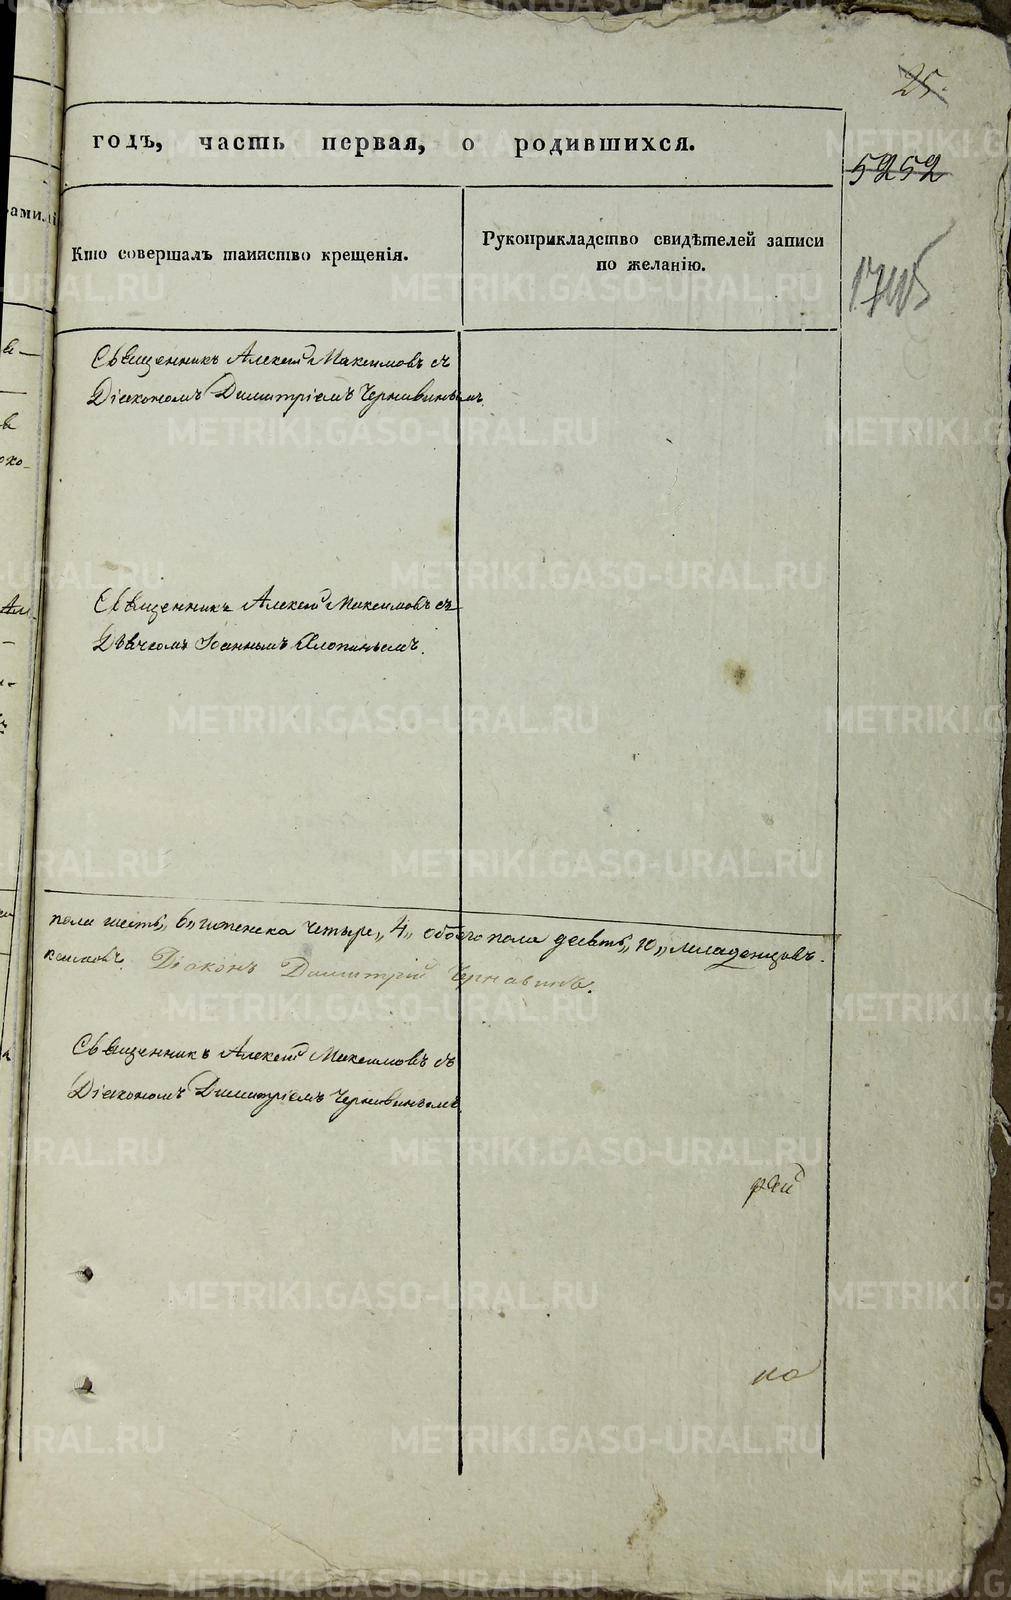 25.
годъ, часть первая, о родившихся.
5252
Кто совершалъ таинство крещенія.
Рукоприкладство свидѣтелей записи
по желанію.
Священникъ Алексій Максимовъ съ
Діакономъ Димитріемъ Чернавинымъ.
Священникъ Алексій Максимовъ съ
Дьячкомъ Іоанномъ Хлопинымъ.
пола шесть „6„ женска четыре „4„ обоего пола десять „10„ младенцовъ.
ксимовъ. Діаконъ Димитрій Чернавинъ.
Священникъ Алексій Максимовъ съ
Діакономъ Димитріемъ Чернавинымъ
рай
но
METRIKI.GASO-URAL.RU